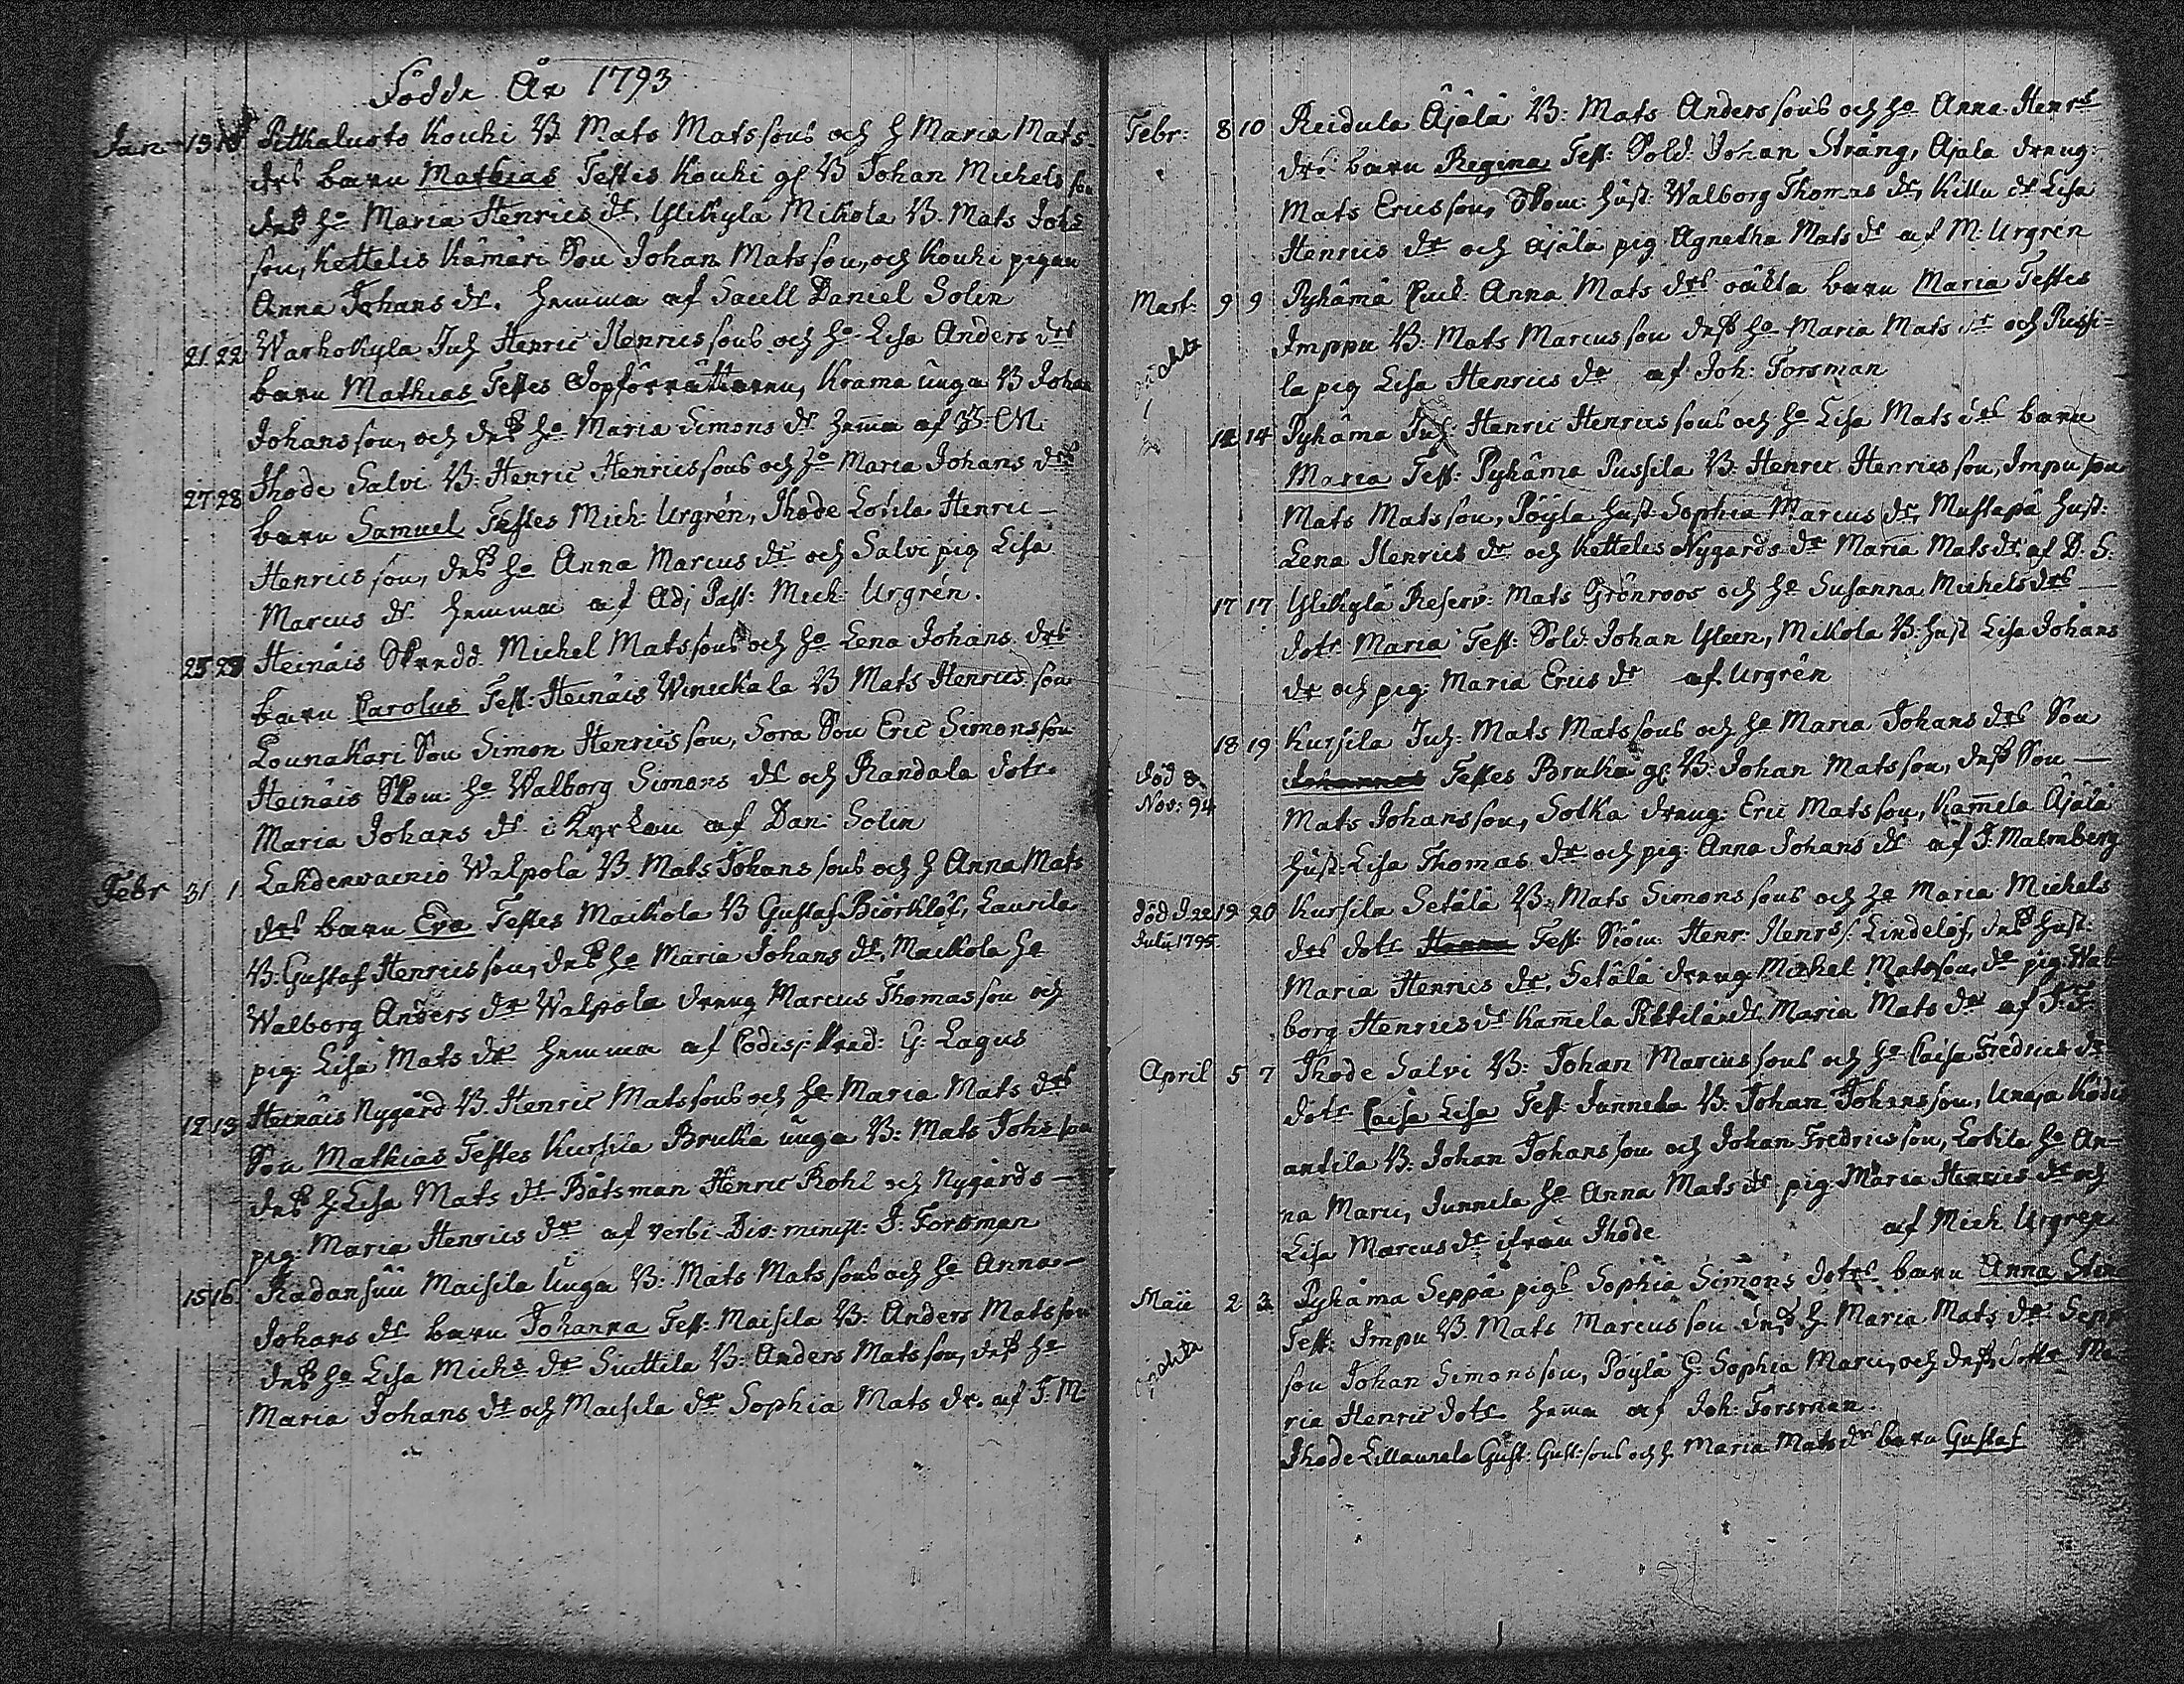 Födde År 1793
Jan: 13 Pitkalusto Kouhi B. Mats Matssons och h Maria Mats
drs barn Mathias Testes Kouhi gl B Johan Michelsson
dess ho Maria Henrics dr, Ylikyla Mikola B. Mats Johs
son, Kettelis Kämäri Son Johan Matsson, och Kouhi pigan
Anna Johans dr. hemma af Sacell Daniel Solin
21 22 Warhokyla Inh Henric Henricssons och ho Lisa Anders drs
barn Mathias Testes Krama unga B Johan
Johansson, och dess ho Maria Simons dr hema af
27 28 Ihode Salvi B: Henric Henricssons och ho Maria Johans drs
barn Samuel Testes Mich: Urgrén, Ihode Lotila Henric
Henricsson, dess ho Anna Marcus dr och Salvi pig Lisa
Marcus dr hemma af Adj Past: Mich: Urgrén.
Heinäis Skredd. Michel Matssons och ho Lena Johans drs
barn Carolus Test: Heinäis Winickala B Mats Henricsson
Lounakari Son Simon Henricsson, Sora Son Eric Simonsson
Heinäis Skom: ho Walborg Simons dr och Randala dotr.
Maria Johans dr i Kyrkan af Dan: Solin
Febr 31 1 Lahdenvainio Walpola B. Mats Johanssons och h Anna Mats
drs barn Eva Testes Maikola B Gustaf Biörklöf, Laurila
B: Gustaf Henricsson, dess ho Maria Johans dr, Maikola ho
Walborg Anders dr Walpola dreng Marcus Thomasson och
pig: Lisa Mats dr hemma af G: Lagus
12 13 Heinäis Nygård B. Henric Matssons och ho Maria Mats drs
Son Mathias Testes Kursila Bruka unga B: Mats Johsson
dess h Lisa Mats dr Båtsman Henric Rohl och Nygårds
pig: Maria Henrics dr af verbi Div: minist: J: Forsman
15 16 Radansuu Maisila Unga B: Mats Matssons och ho Anna
Johans dr barn Johanna Test: Maisila B: Anders Matsson
dess ho Lisa Michs dr Siuttila B: Anders Matsson, dess ho
Maria Johans dr och Maisila dr Sophia Mats dr. af J: M:
Febr: 8 10 Reidula Äjälä B: Mats Anderssons och ho Anna Henrs
drs barn Regina Test: Sold: Johan Sträng, Ajala dreng
Mats Ericsson, Skom: hust: Walborg Thomas dr, Killu dr Lisa
Henrics dr och Äjälä pig Agnetha Mats dr af M: Urgrén
Mart: 9 9 Pyhämä Anna Mats drs oäkta barn Maria Testes
oächta
Imppu B: Mats Marcusson dess ho Maria Mats dr och Pussi-
la pig Lisa Henrics dr af Joh: Forsman
14 14 Pyhäma Inh: Henric Henricssons och ho Lisa Mats drs barn
Maria Test: Pyhäma Pussila B: Henric Henricsson, Impu son
Mats Matsson, Pöyla hust Sophia Marcus dr, Mustapä hust:
Lena Henrics dr och Kettelis Nygårds dr Maria Mats dr af D: S:
17 17 Ylikylä Reserv: Mats Grönroos och ho Susanna Michels drs
dotr Maria Test: Sold: Johan Yleen, Mikola B: hust Lisa Johans
dr och pig: Maria Erics dr af Urgrén
18 19 Kursila Inh: Mats Matssons och ho Maria Johans drs Son
död 8 Nov: 94
Johannes Testes Bruka gl: B: Johan Matsson, dess Son
Mats Johansson, Sotka dreng: Eric Matsson, Kamela Äjälä
hust: Lisa Thomas dr och pig: Anna Johans dr af J: Malmberg
död d 22 Julii 1795.
19 20 Kursila Setälä B: Mats Simonssons och ho Maria Michels
drs dotr Test: Henr: Henrs s: Lindelöf, dess hust:
Maria Henrics dr, Setälä dreng Michel Matsson, do pig Wal
borg Henrics dr Kamela Maria Mats dr af J: F
April 5 7 Ihode Salvi B: Johan Marcussons och ho Caisa Fredrics dr
dotr Caisa Lisa Test: Junnila B: Johan Johansson, Unaja
antila B: Johan Johansson och Johan Fredricsson, Lotila ho An-
na Marc, Junnila ho Anna Mats dr pig Maria Henrics dr och
Lisa Marcus dr ifrån Ihode af Mich. Urgren
Maii 2 3 Pyhäma Seppä pigs Sophia Simons dotrs barn Anna Stin
oächta
Test: Impu B. Mats Marcusson dess h: Maria Mats dr Sepp
son Johan Simonsson, Pöylä h: Sophia Marc, och dess dotr Ma-
ria Henric dotr hema af Joh: Forsman.
Ihode Lillaunela Gust: Gust:sons och h Maria Mats drs barn Gustaf